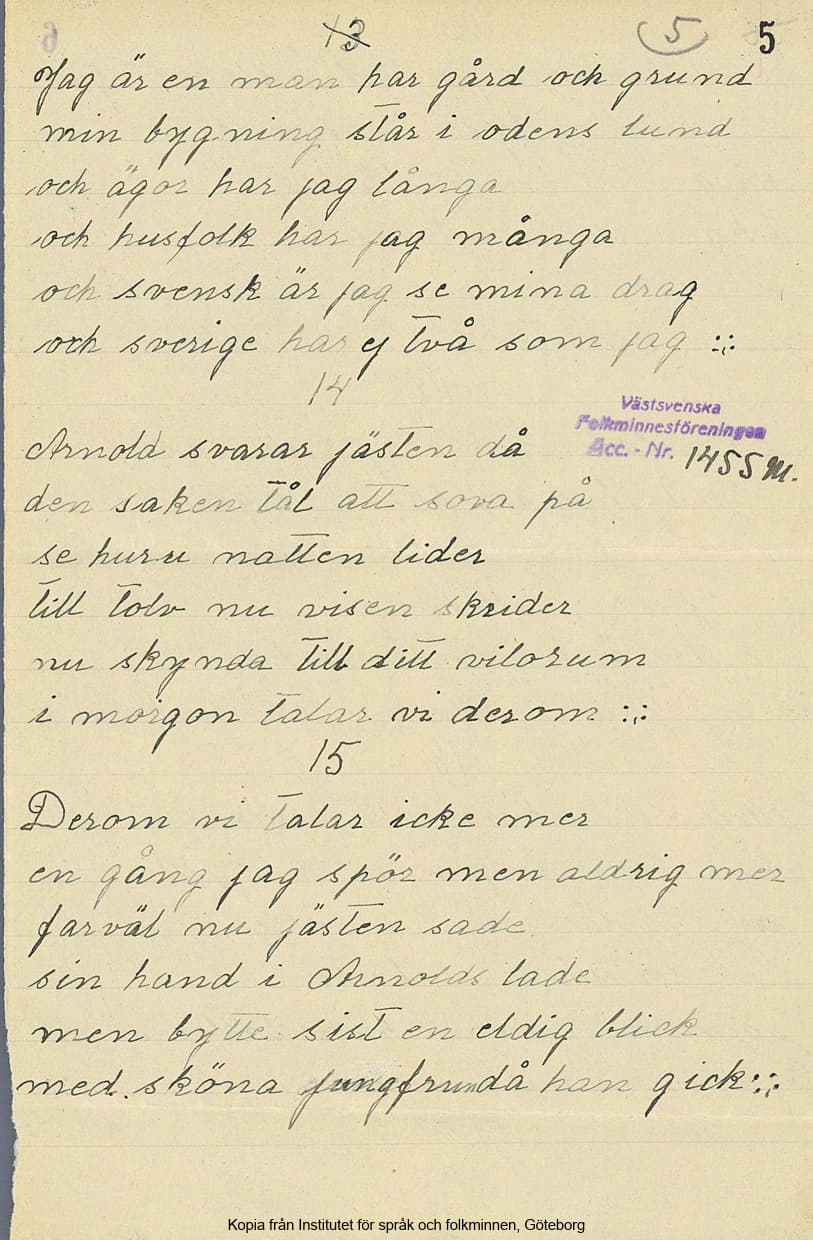 13 5 5
Jag är en man har gård och grund
min bygning står i odens lund
och ägor har jag långa
och husfolk har jag många
och svensk är jag se mina drag
och sverige har ej två som jag :;:
14
Västsvenska
Folkminnesföreningen
Acc. - Nr. 1455 M.
Arnold svarar jästen då
den saken tål att sova på
se huru natten lider
till tolv nu visen skrider
nu skynda till ditt vilorum
i morgon talar vi derom :;:
15
Derom vi talar icke mer
en gång jag spör men aldrig mer
farväl nu jästen sade
sin hand i Arnolds lade
men bytte sist en eldig blick
med sköna jungfrun då han gick :;:
Kopia från Institutet för språk och folkminnen, Göteborg